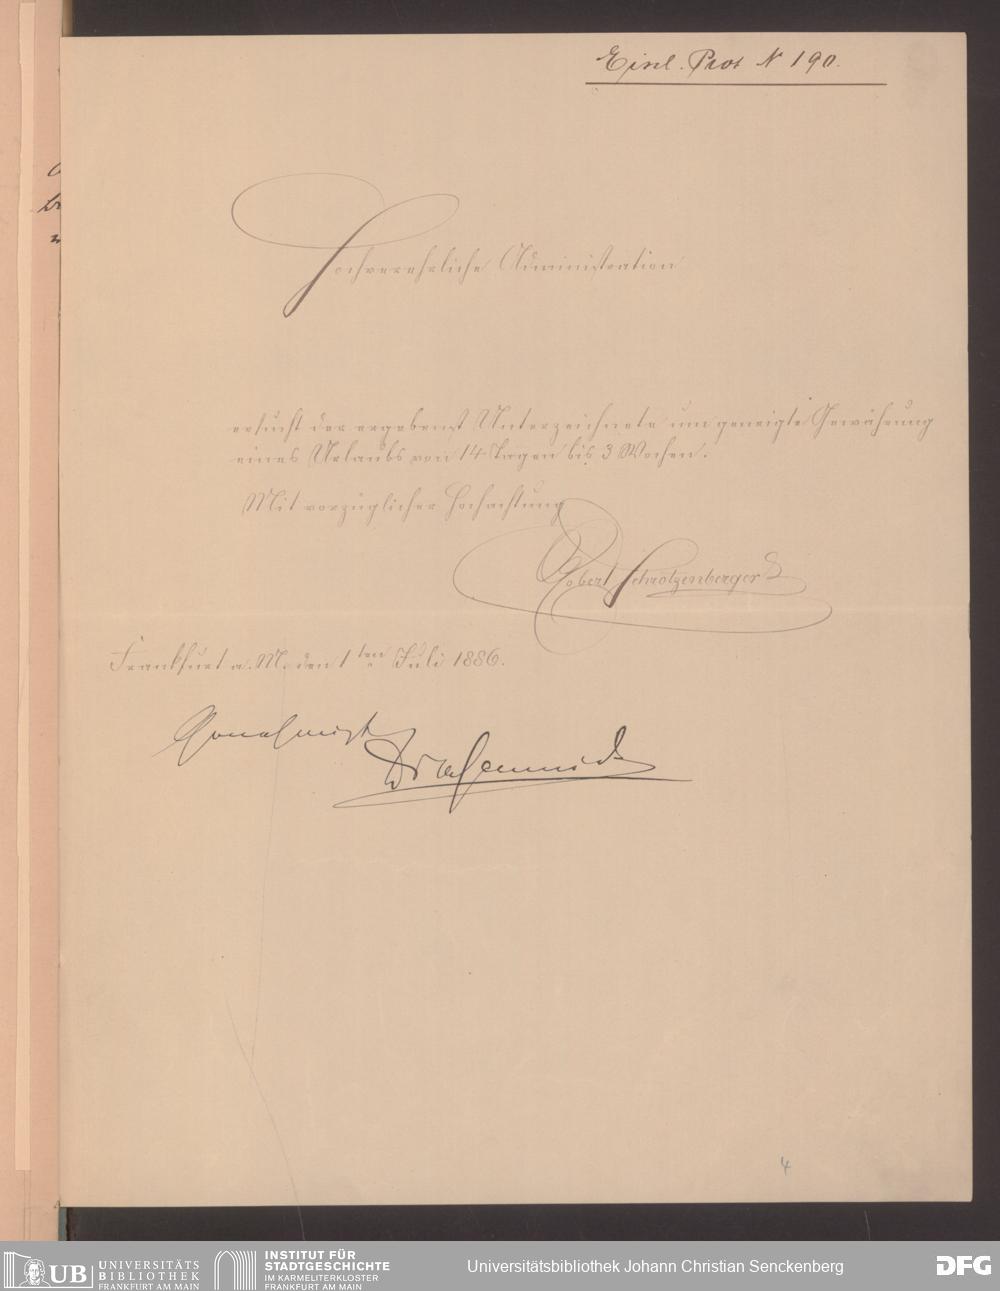 Einl. Prot № 190.
Hochverehrliche Administration
ersucht der ergebenst Unterzeichnete um geneigte Gewährung
eines Urlaubs von 14 Tagen bis 3 Wochen.
Mit vorzüglicher Hochachtung
Robert Schrotzenberger
Frankfurt a. M. den 1ten Juli 1886.
Genehmigt
4
UB UNIVERSITÄTS
BIBLIOTHEK
FRANKFURT AM MAIN
INSTITUT FÜR
STADTGESCHICHTE
IM KARMELITERKLOSTER
FRANKFURT AM MAIN
Universitätsbibliothek Johann Christian Senckenberg
DFG